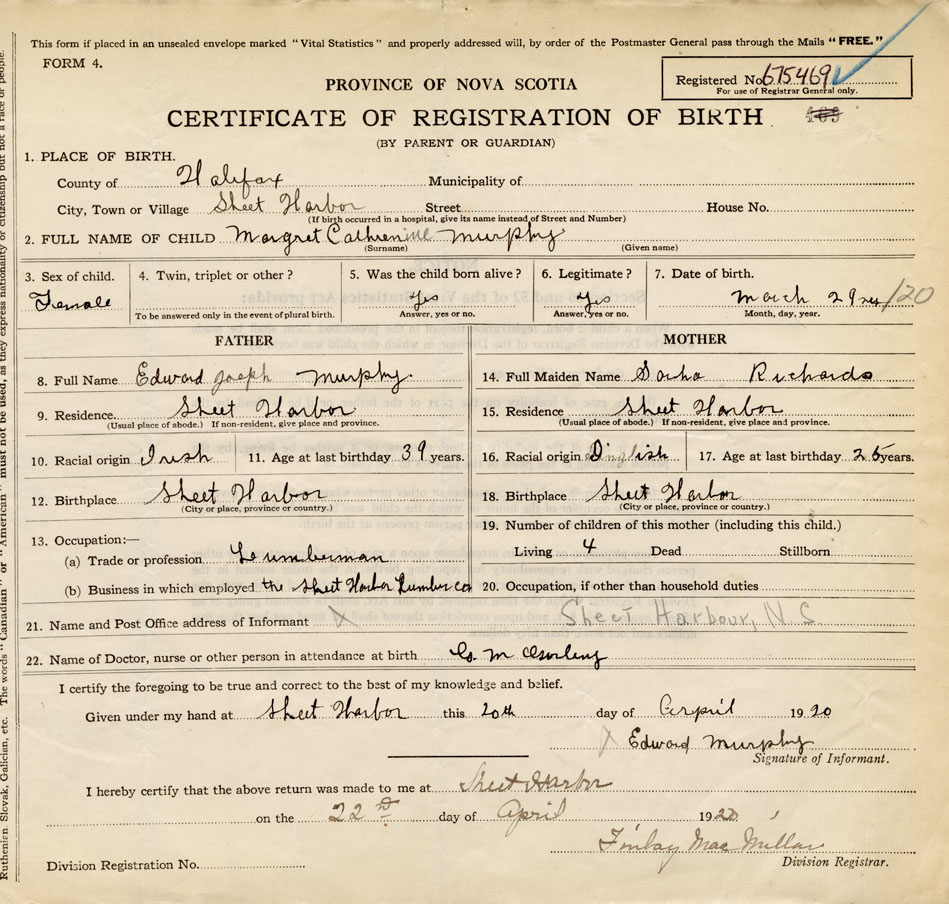 This form if placed in an unsealed envelope marked "Vital Statistics" and properly addressed will, by order of the Postmaster General pass through the Mails "FREE."
FORM 4.
Registered No. 675469
For use of Registrar General only.
PROVINCE OF NOVA SCOTIA
CERTIFICATE OF REGISTRATION OF BIRTH
(BY PARENT OR GUARDIAN)
1. PLACE OF BIRTH.
County of Halifax Municipality of
City, Town or Village Sheet Harbor Street House No.
(If birth occurred in a hospital, give its name instead of Street and Number)
2. FULL NAME OF CHILD Margret Cathrenine Murphy
(Surname) (Given name)
3. Sex of child. 4. Twin, triplet or other? 5. Was the child born alive? 6. Legitimate? 7. Date of birth.
Female Yes Yes March 29 /20
To be answered only in the event of plural birth. Answer, yes or no. Answer, yes or no. Month, day, year.
FATHER MOTHER
8. Full Name Edward Joseph Murphy 14. Full Maiden Name Sarha Richards
9. Residence Sheet Harbor 15. Residence Sheet Harbor
(Usual place of abode.) If non-resident, give place and province. (Usual place of abode.) If non-resident, give place and province.
10. Racial origin Irish 11. Age at last birthday 39 years. 16. Racial origin English 17. Age at last birthday years.
12. Birthplace Sheet Harbor 18. Birthplace Sheet Harbor
(City or place, province or country.) (City or place, province or country.)
13. Occupation:— 19. Number of children of this mother (including this child.)
(a) Trade or profession Lumberman Living 4 Dead Stillborn
(b) Business in which employed the Sheet Harbor Lumber co 20. Occupation, if other than household duties
21. Name and Post Office address of Informant X Sheet Harbour, N.S
22. Name of Doctor, nurse or other person in attendance at birth
I certify the foregoing to be true and correct to the best of my knowledge and belief.
Given under my hand at Sheet Harbor this 20th day of Arpril 1920
X Edward Murphy
Signature of Informant.
I hereby certify that the above return was made to me at Sheet Harbor
on the 22nd day of April 1920
Finlay MacMillan
Division Registrar.
Division Registration No.
Ruthenian, Slovak, Galician, etc. The words "Canadian" or "American" must not be used, as they express nationality or citizenship but not a race or people.